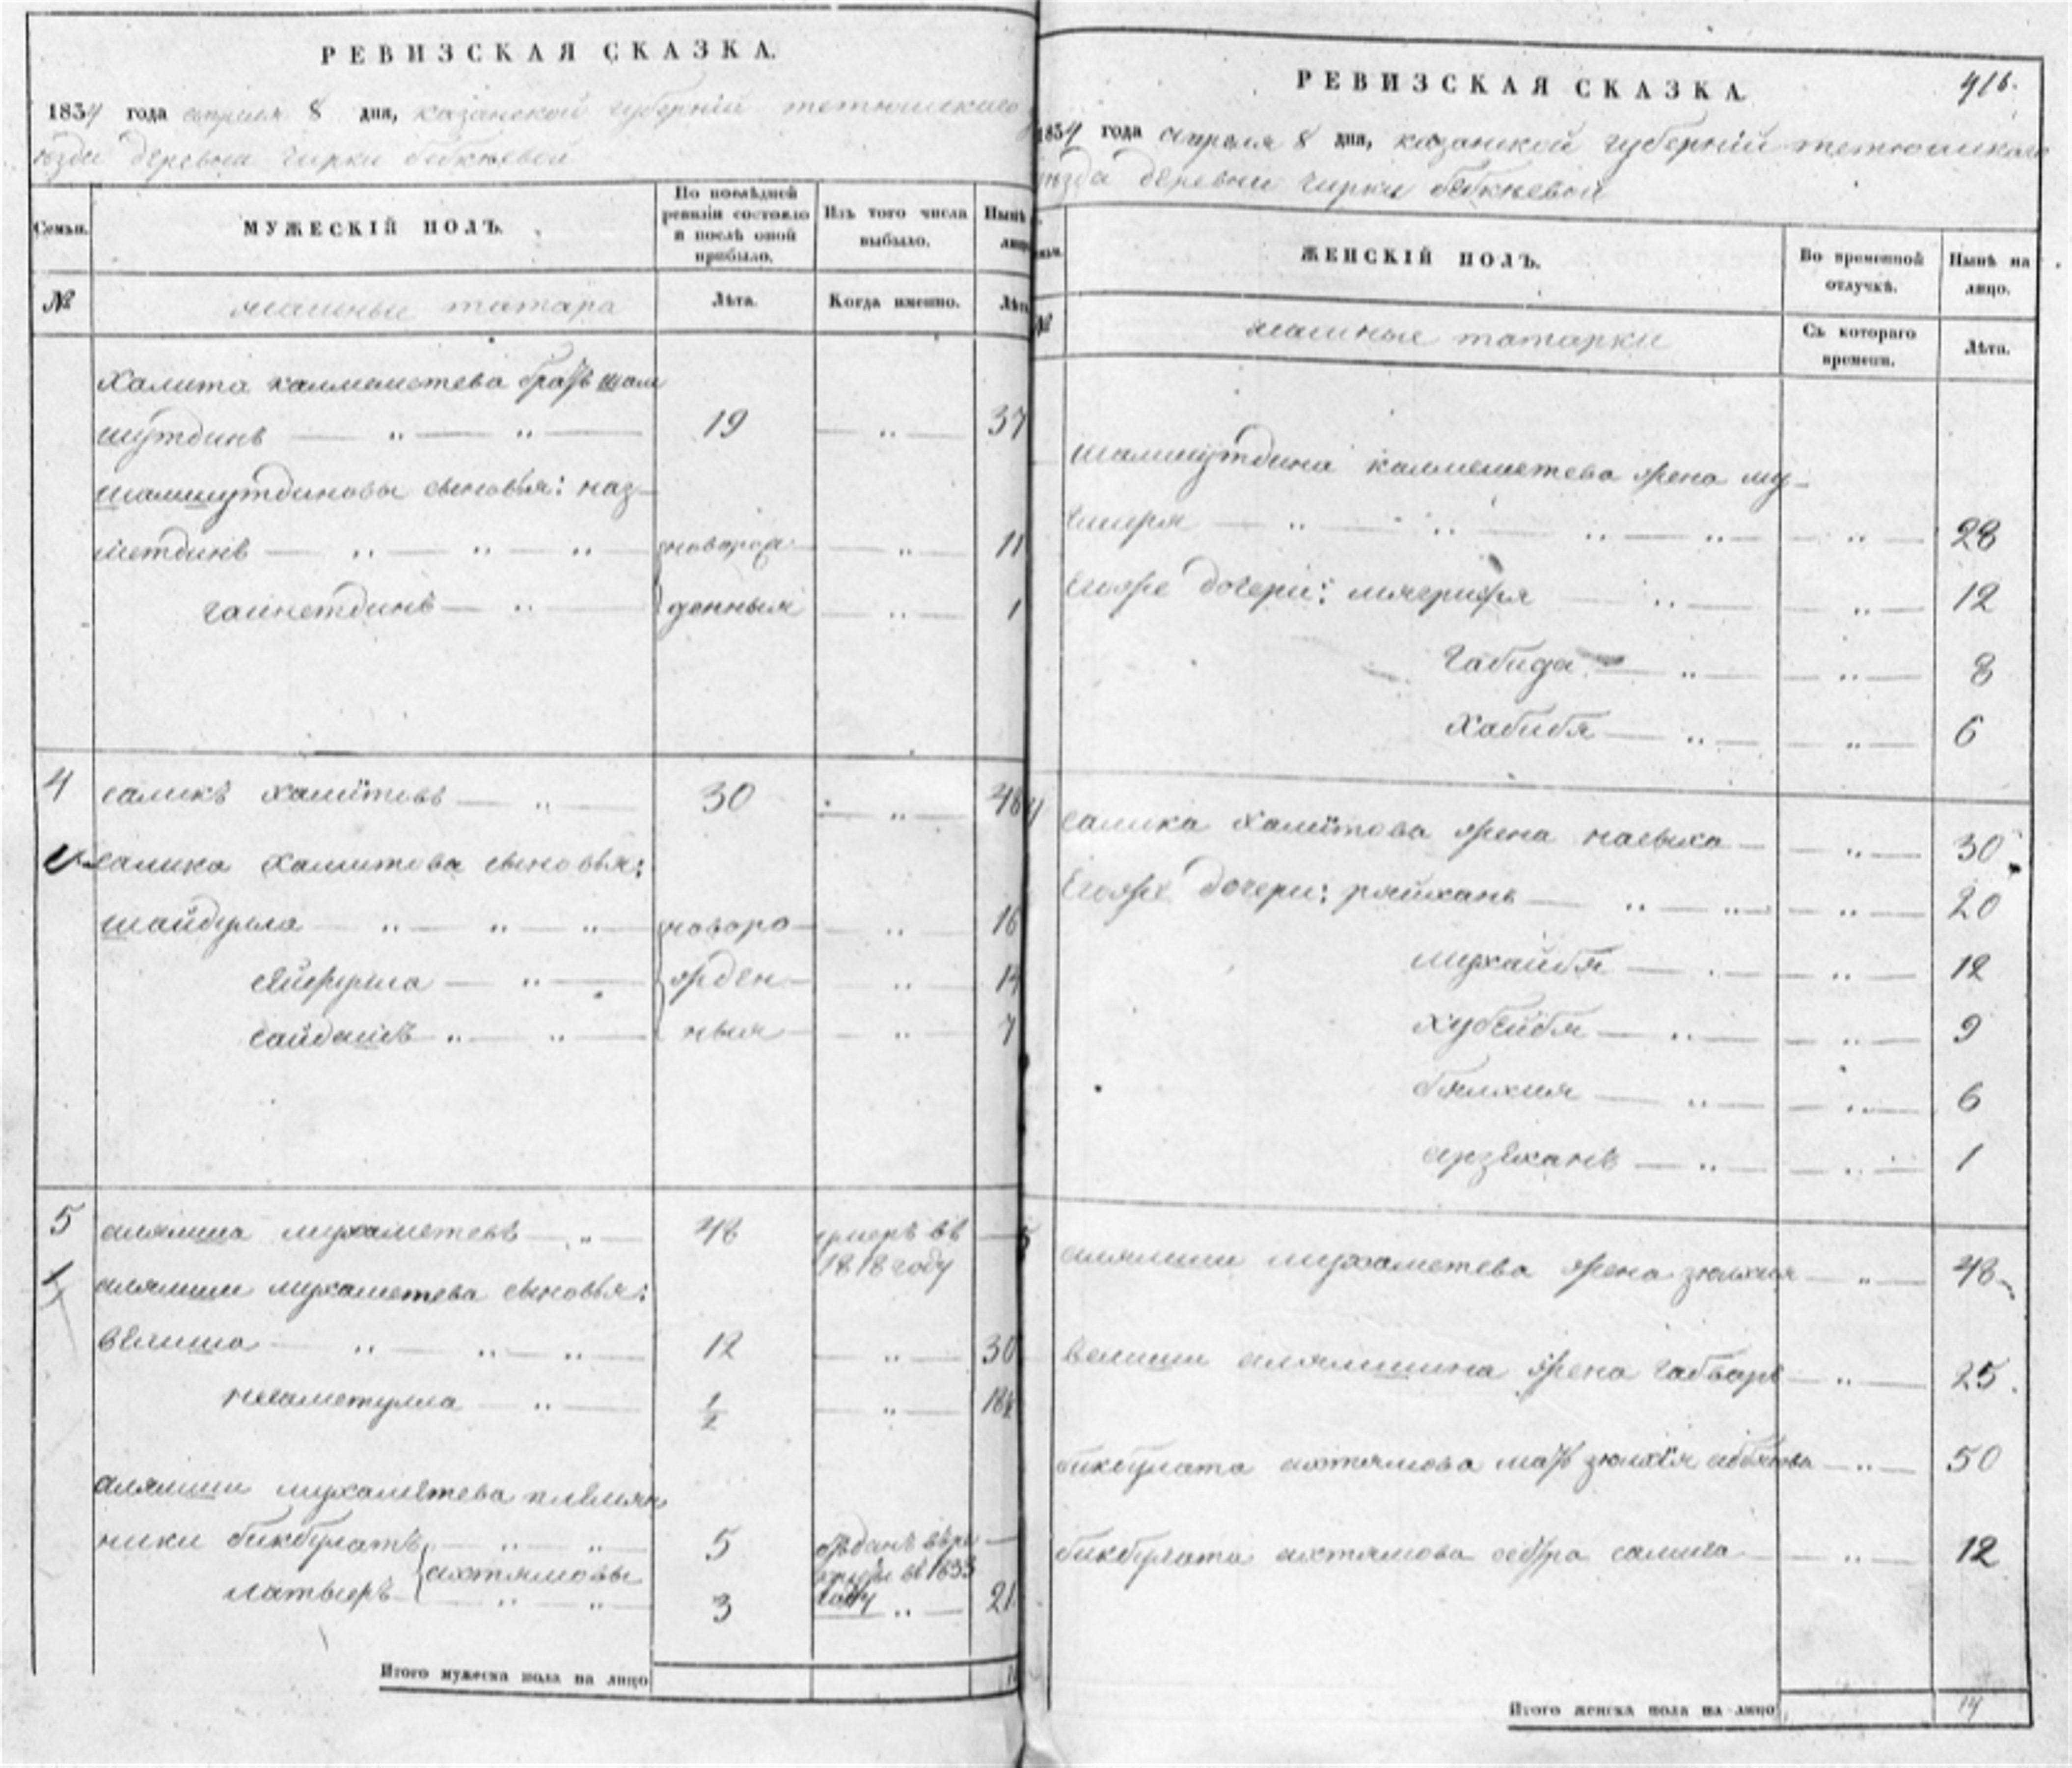 РЕВИЗСКАЯ СКАЗКА.
1834 года апреля 8 дня, казанской губерніи тетюшскаго у
езда деревни чирки бебкеевой
Семьи.
МУЖЕСКІЙ ПОЛЪ.
По послѣдней ревизіи состояло и послѣ оной прибыло.
Изъ того числа выбыло.
Нынѣ лицо
№
ясашные татара
Лѣта.
Когда именно.
Лѣта
Халита калмаметева братъ шам
шутдинъ 19 37
шамшутдиновы сыновья: наз
метдинъ новорож 11
гаинетдинъ денныя 1
4 саликъ халитовъ 30 48
салика халитова сыновья:
шайдулла новоро 16
сяйфулла жден 14
сайдашъ ныя 7
5 алямша мухаметевъ 48 умеръ въ
1818 году
алямши мухаметева сыновья:
велиша 12 30
негаметулла 1/2 18½
алямши мухаметева племян
ники бикбулатъ 5 отданъ въ
ахтямовы въ 1833
латыфъ 3 году 21
Итого мужеска пола на лицо
РЕВИЗСКАЯ СКАЗКА.
416.
1834 года апреля 8 дня, казанской губерніи тетюшскаго
уезда деревни чирки бебкеевой
ЖЕНСКІЙ ПОЛЪ.
Во временной отлучкѣ.
Нынѣ на лицо.
№
ясашные татарки
Съ котораго времени.
Лѣта.
шамшутдина калмаметева жена му
28
Егоже дочери: мягрифя 12
Габида 8
Хабибя 6
4 салика халитова жена 30
Егоже дочери: ряйханъ 20
мухайбя 12
хубейбя 9
бялхия 6
арзеханъ 1
5 алямши мухаметева жена зюлхия 48
велиши алямшина жена 25.
бикбулата ахтямова мать зюлхія 50
бикбулата ахтямова сестра 12
Итого женска пола на-лицо 14